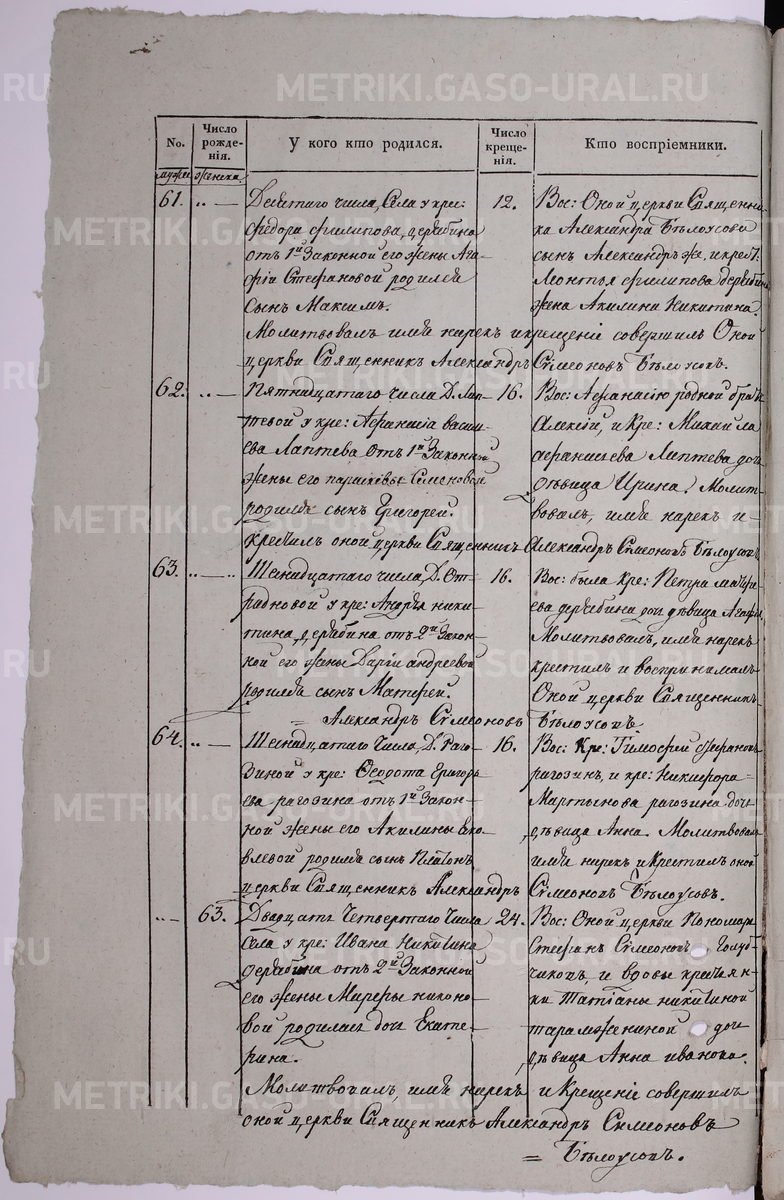 METRIKI.GASO-URAL.RU
No.
Число рожде-нія.
У кого кто родился.
Число креще-нія.
Кто воспріемники.
мужес женска
61. Десятаго числа, Села у крес:
Федора Филипова, дерябина
отъ 1й Законной его жены Ага-
фіи Стефановой родился
Сынъ Максимъ.
12.
Вос: Оной церкви Священни-
ка Александра Бѣлоусова
сынъ Александръ же, и крест:
Леонтья Филипова дерябина
жена Акилина Никитина.
Молитвовалъ имя нарекъ и крещеніе совершилъ Оной
церкви Священникъ Александръ Симеоновъ Бѣлоусовъ.
62. Пятнадцатаго числа Д. Лап-
тевой у кре: Афанасія васи-
ева Лаптева отъ 1й Законной
жены его парасковьи Семеновой
родился сынъ Григорей.
16.
Вос: Афанасію родной братъ
Алексій, и Кре: Михайла
афанасьева Лаптева дочь
дѣвица Ирина. Молит-
вовалъ, имя нарекъ и-
крестилъ оной церкви Священникъ Александръ Симеоновъ Бѣлоусовъ
63. Шеснадцатаго числа, Д. От-
радновой у кре: Андрея ники-
тина, дерябина отъ 2й Закон-
ной его жены Даріи андреевой
родился сынъ Матфей.
16.
Вос: была Кре: Петра матфе-
ева дерябина дочь дѣвица Агафья,
Молитвовалъ, имя нарекъ
крестилъ и воспринималъ
Оной церкви Священникъ
= Александръ Симеоновъ Бѣлоусовъ
64. Шеснадцатаго Числа, Д. Раго-
зиной у кре: Ѳеодота Григорь
ева рагозина отъ 1й Закон-
ной жены его Акилины Яко-
влевой родился сынъ Платонъ
16.
Вос: Кре: Тимофей стефановъ
рагозинъ, и кре: Никифора
Мартынова рагозина дочь
дѣвица Анна. Молитвовалъ
имя нарекъ и Крестилъ оной
церкви Священникъ Александръ Симеоновъ Бѣлоусовъ.
63. Двадцать Четвертаго Числа
Села у кре: Ивана Никитина
дерябина отъ 2й Законной
его жены Марѳы никоно-
вой родилась дочь Екате-
рина.
24.
Вос: Оной церкви Пономарь
Стефанъ Симеоновъ Голуб-
чиковъ, и вдовы крестьян-
ки Татіаны никитиной
дочь
дѣвица Анна иванова.
Молитвовалъ, имя нарекъ и Крещеніе совершилъ
оной церкви Священникъ Александръ Симеоновъ
= Бѣлоусовъ.